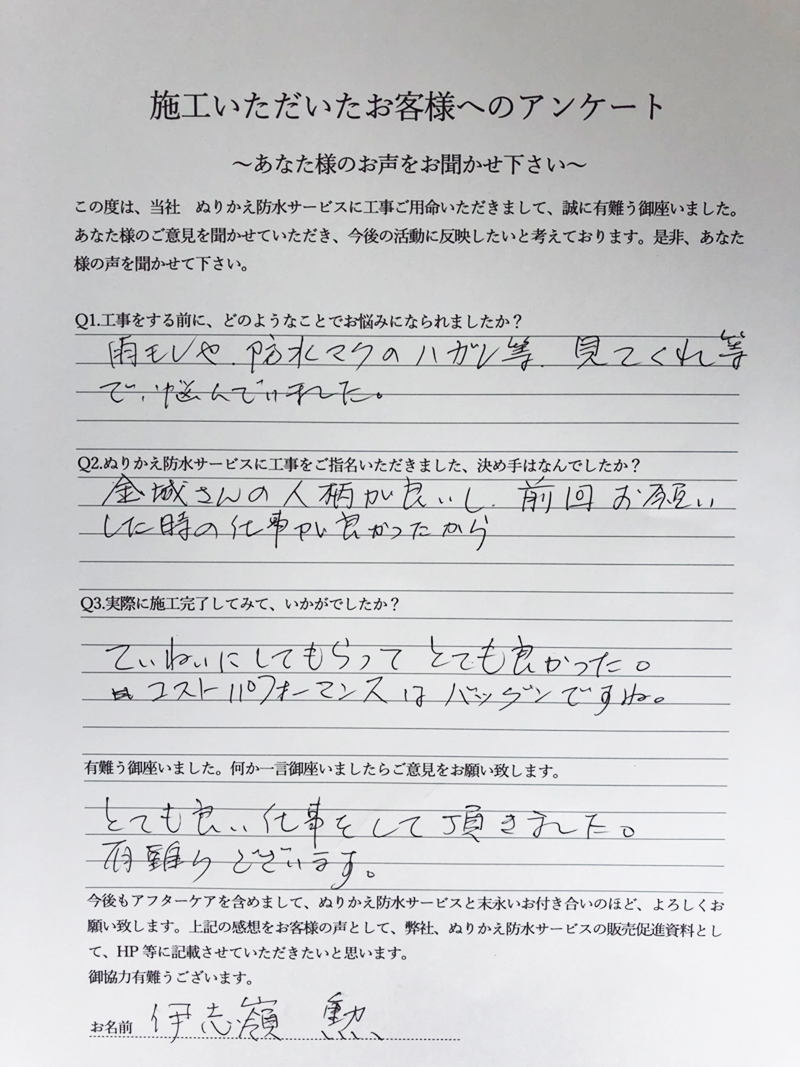 施工いただいたお客様へのアンケート
～あなた様のお声をお聞かせ下さい～
この度は、当社　ぬりかえ防水サービスに工事ご用命いただきまして、誠に有難う御座いました。
あなた様のご意見を聞かせていただき、今後の活動に反映したいと考えております。是非、あなた
様の声を聞かせて下さい。
Q1.工事をする前に、どのようなことでお悩みになられましたか？
雨モレや、防水マクのハガレ等、見てくれ等
で、悩んでいました。
Q2.ぬりかえ防水サービスに工事をご指名いただきました、決め手はなんでしたか？
金城さんの人柄が良いし、前回お願い
した時の仕事が良かったから
Q3.実際に施工完了してみて、いかがでしたか？
ていねいにしてもらってとても良かった。
コストパフォーマンスはバツグンですね。
有難う御座いました。何か一言御座いましたらご意見をお願い致します。
とても良い仕事をして頂きました。
有難うございます。
今後もアフターケアを含めまして、ぬりかえ防水サービスと末永いお付き合いのほど、よろしくお
願い致します。上記の感想をお客様の声として、弊社、ぬりかえ防水サービスの販売促進資料とし
て、HP 等に記載させていただきたいと思います。
御協力有難うございます。
お名前　伊志嶺　勲